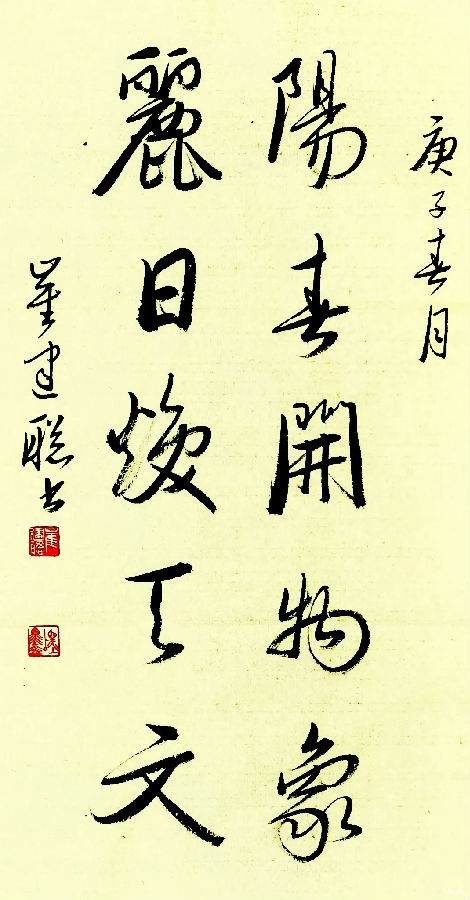 庚子春月
陽春開物象
麗日煥天文
崔建聰书